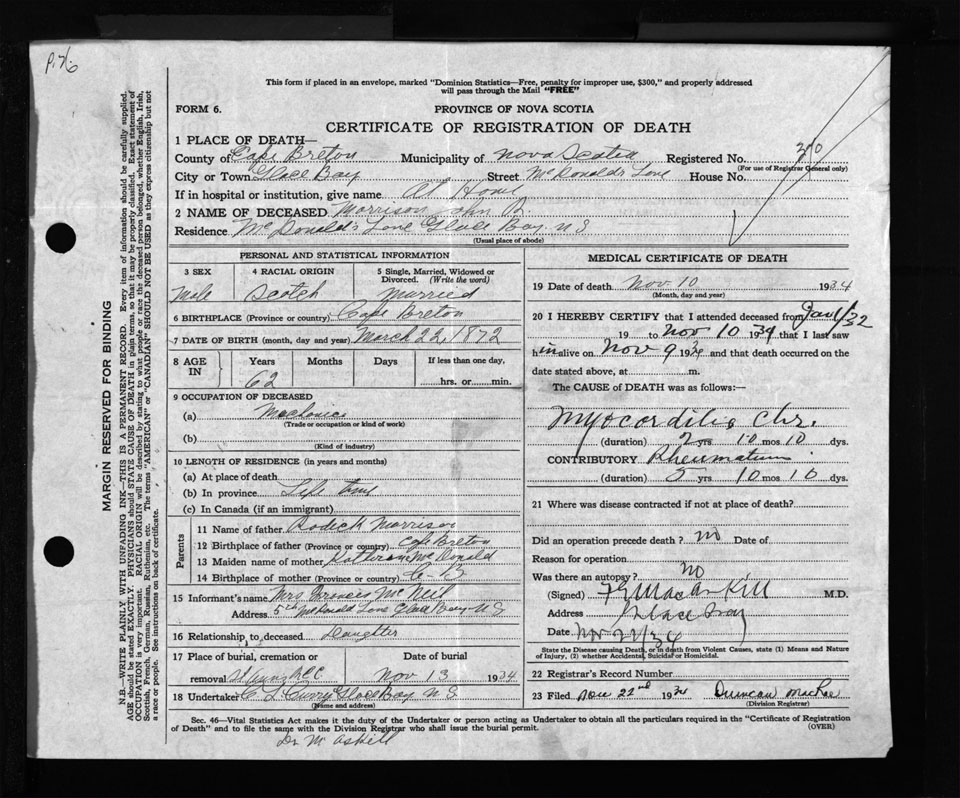 P. 76
This form if placed in an envelope, marked "Dominion Statistics—Free, penalty for improper use, $300," and properly addressed
will pass through the Mail "FREE"
FORM 6.
PROVINCE OF NOVA SCOTIA
CERTIFICATE OF REGISTRATION OF DEATH
1 PLACE OF DEATH—
County of Cape Breton Municipality of Nova Scotia Registered No. 390
(For use of Registrar General only)
City or Town Glace Bay Street McDonald's Lane House No.
If in hospital or institution, give name At Home
2 NAME OF DECEASED Morrison John B.
Residence McDonald's Lane Glace Bay N.S
(Usual place of abode)
PERSONAL AND STATISTICAL INFORMATION
3 SEX 4 RACIAL ORIGIN 5 Single, Married, Widowed or
Divorced. (Write the word)
Male Scotch Married
6 BIRTHPLACE (Province or country) Cape Breton
7 DATE OF BIRTH (month, day and year) March 22, 1872
8 AGE IN Years Months Days If less than one day,
62 hrs. or min.
9 OCCUPATION OF DECEASED
(a) Mechanic
(Trade or occupation or kind of work)
(b)
(Kind of industry)
10 LENGTH OF RESIDENCE (in years and months)
(a) At place of death
(b) In province Life time
(c) In Canada (if an immigrant)
Parents
11 Name of father Rodick Morrison
12 Birthplace of father (Province or country) Cape Breton
13 Maiden name of mother McDonald
14 Birthplace of mother (Province or country) C-B
15 Informant's name Mrs Frances McNeil
Address 5 McDonald Lane Glace Bay N.S
16 Relationship to deceased Daughter
17 Place of burial, cremation or Date of burial
removal Nov 13 1934
18 Undertaker C L Curry Glace Bay N.S
(Name and address)
MEDICAL CERTIFICATE OF DEATH
19 Date of death Nov 10 1934
(Month, day and year)
20 I HEREBY CERTIFY that I attended deceased from Jan 1/32
19 to Nov 10 1934 and that I last saw
him alive on Nov 9 1934 and that death occurred on the
date stated above, at m.
The CAUSE of DEATH was as follows:—
Myocarditis Chr.
(duration) 2 yrs 10 mos 10 dys.
CONTRIBUTORY Rheumatism
(duration) 5 yrs 10 mos 10 dys.
21 Where was disease contracted if not at place of death?
Did an operation precede death? no Date of
Reason for operation
Was there an autopsy? NO
(Signed) M.D.
Address Glace Bay
Date Nov 21/34
State the Disease causing Death, or in death from Violent Causes, state (1) Means and Nature
of Injury, (2) whether Accidental, Suicidal or Homicidal.
22 Registrar's Record Number
23 Filed Nov 22nd 1934 Duncan McRae
(Division Registrar)
Sec. 46—Vital Statistics Act makes it the duty of the Undertaker or person acting as Undertaker to obtain all the particulars required in the "Certificate of Registration
of Death" and to file the same with the Division Registrar who shall issue the burial permit.
(OVER)
Dr McAskill
MARGIN RESERVED FOR BINDING
N.B.—WRITE PLAINLY WITH UNFADING INK—THIS IS A PERMANENT RECORD. Every item of information should be carefully supplied.
AGE should be stated EXACTLY. PHYSICIANS should STATE CAUSE OF DEATH in plain terms, so that it may be properly classified. Exact statement of
OCCUPATION is very important. RACIAL ORIGIN will be described by stating to what people or race the deceased person belonged, whether English, Irish,
Scottish, French, German, Russian, Ruthenian, etc. The terms "AMERICAN" or "CANADIAN" SHOULD NOT BE USED as they express citizenship but not
a race or people. See instructions on back of certificate.